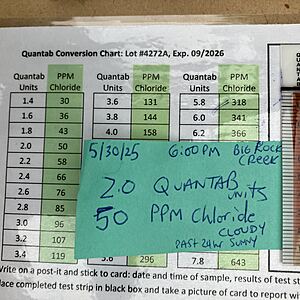 Quantab Conversion Chart: Lot #4272A, Exp. 09/2026
Quantab Units PPM Chloride Quantab Units PPM Chloride Quantab Units PPM Chloride
1.4 30 3.6 131 5.8 318
1.6 36 3.8 144 6.0 341
1.8 43 4.0 158 6.2 366
2.0 50
2.2 58
2.4 66
2.6 76
2.8 85
3.0 96
3.2 107
3.4 119 5.6 296 7.8 643
5/30/25 6:00 PM BIG ROCK CREEK
2.0 QUANTAB UNITS
50 PPM Chloride
CLOUDY
PAST 24W SUNNY
Write on a post-it and stick to card: date and time of sample, results of test s
lace completed test strip in black box and take a picture of card to report wi